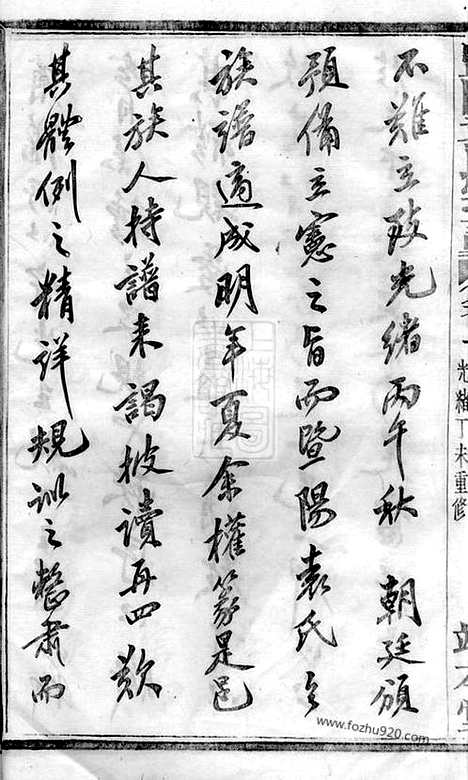 不難立致光緒丙午秋　朝廷頒
預備立憲之旨而暨陽袁氏之
族譜適成明年夏余權篆是邑
其族人持譜来謁披讀再四歎
其體例之精詳規訓之整肅而
光緒丁未重修
www.fozhu920.com